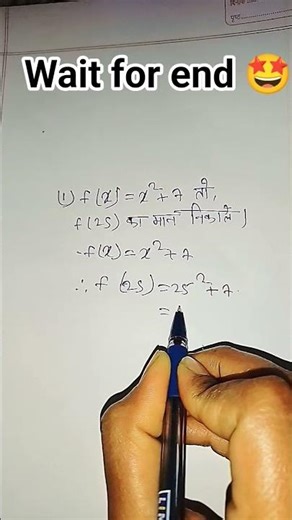 Wait for end 🤩
(1) f(x) = x²+7 तो,
f(25) का मान निकालें।
f(x) = x²+7
∴ f(25) = 25²+7
=